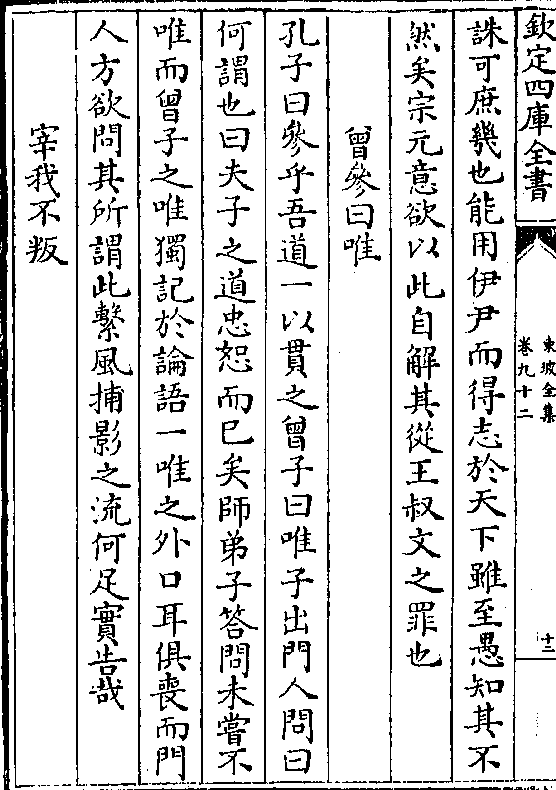 欽定四庫全書
東坡全集
卷九十二
十三
誅可庶㡬也能用伊尹而得志於天下雖至愚知其不
然矣宗元意欲以此自解其從王叔文之罪也
曾參曰唯
孔子曰參乎吾道一以貫之曾子曰唯子出門人問曰
何謂也曰夫子之道忠恕而已矣師弟子答問未嘗不
唯而曾子之唯獨記於論語一唯之外口耳俱喪而門
人方欲問其所謂此繫風捕影之流何足實告哉
宰我不叛